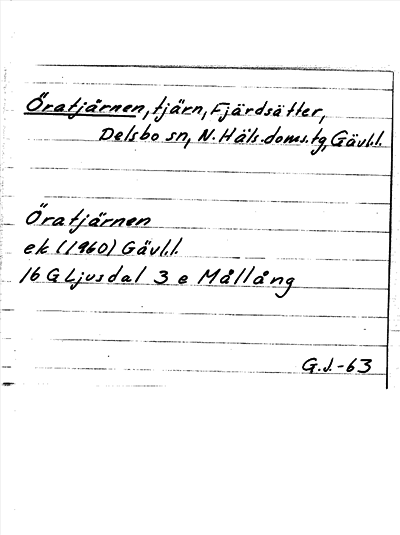 Öratjärnen, tjärn, Fjärdsätter,
Delsbo sn, N. Häls. doms. tg, Gävl.l.
Öratjärnen
ek (1960) Gävl.l.
16 G Ljusdal 3 e Mållång
G.J.-63